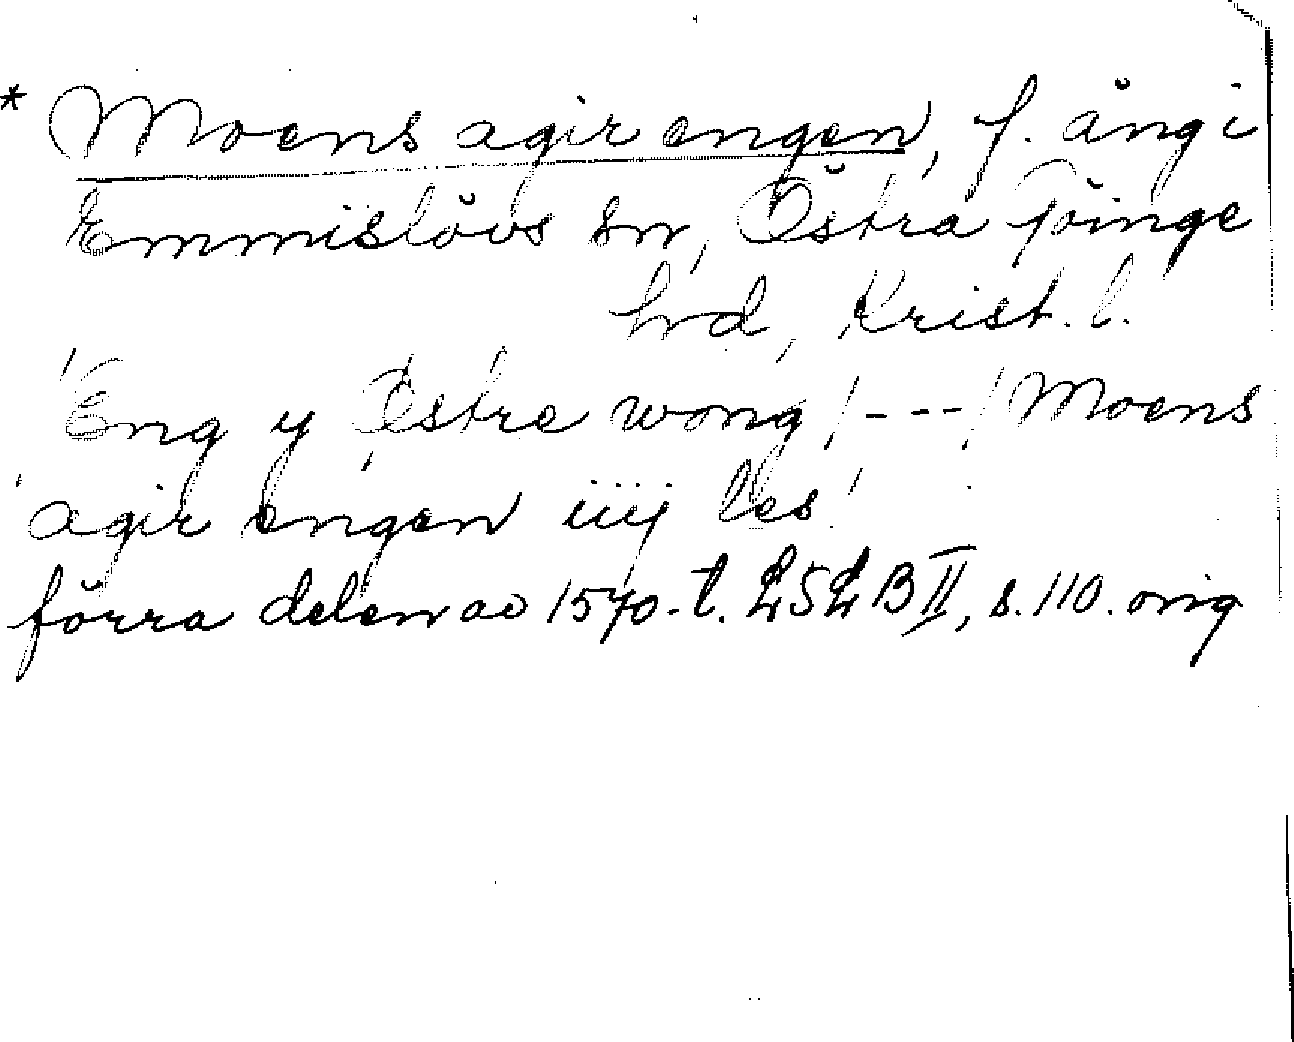 * Moens agir engen, f. äng i
Emmislövs sn, Östra Göinge
hrd, Krist. l.
'Eng y Østre wong /---/ Moens
agir engen iiij les'
förra delen av 1570-t. LSLB II, s. 110. orig